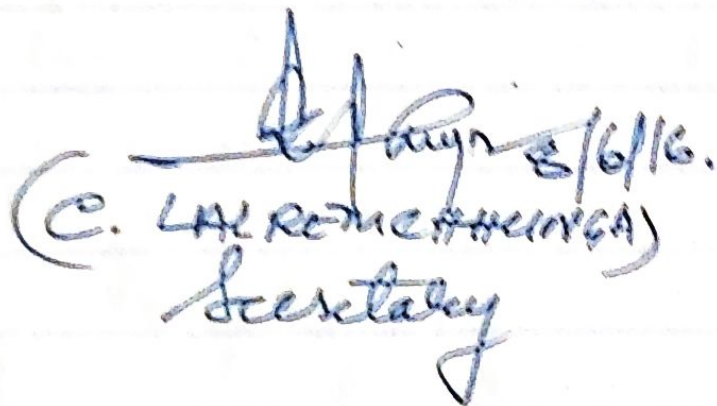 8/6/16.
(C. LALREMCHHUNGA)
Secretary